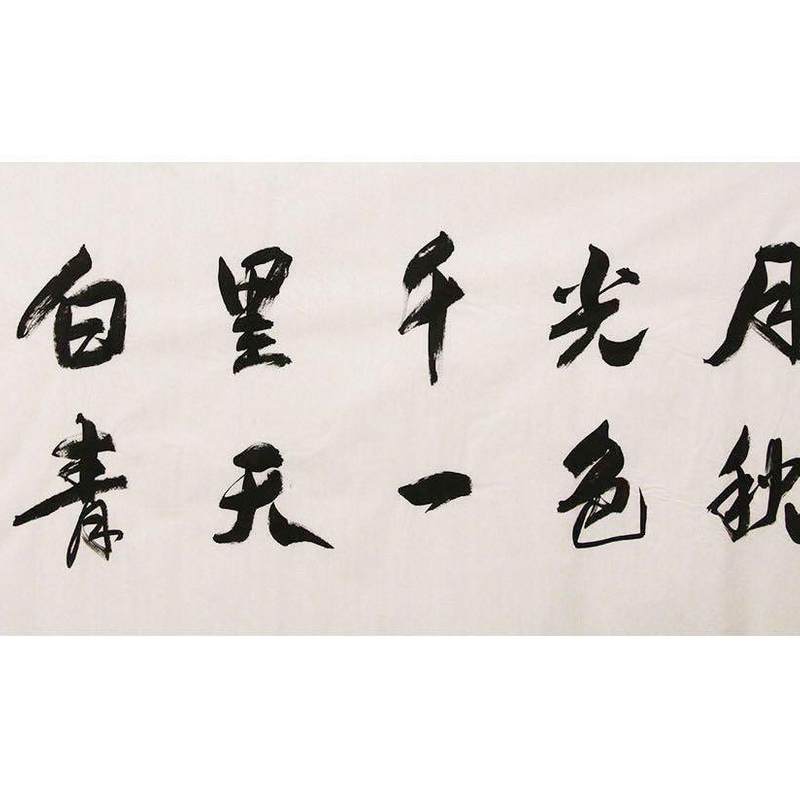 月光千里白
秋色一天青